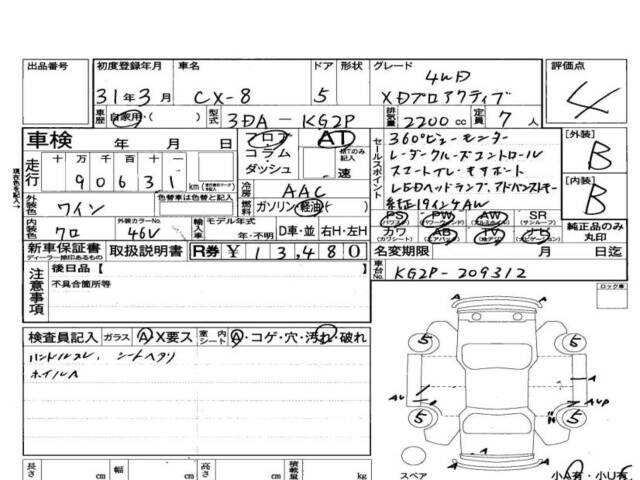 出品番号 初度登録年月 車名 ドア 形状 グレード 評価点
31年3月 CX-8 5 4WD
XDプロアクティブ 4
車歴 自家用・( ) 型式 3DA-KG2P 排気量 2200cc 定員 7人
車検 年 月 日 フロア AT
コラム
ダッシュ 速
セールスポイント 360°ビューモニター
レーダークルーズコントロール
スマートブレーキサポート
LEDヘッドランプ、アドバンストキー
純正19インチAW
[外装] B
[内装] B
現在色を記入→
走行 十 万 千 百 十 一
90631 km
冷房 AAC
燃料 ガソリン・軽油・( )
外装色 ワイン 色替車は色替と記入
内装色 クロ 外装カラーNo. 46V 輸入車 モデル年式 年・不明 D車・並 右H・左H
PS PW AW SR
(パワステ) (パワーウィンド) (アルミホイル) (サンルーフ)
カワ AB TV ナビ
(カワシート) (エアバッグ) (ナビゲーション)
純正品のみ
丸印
新車保証書 取扱説明書 R券 ¥13,480
ディーラー捺印あるもの
名変期限 月 日迄
車台No. KG2P-209312
注意事項 後日品【 】
不具合箇所等
ロック車
検査員記入 ガラス A・X要ス 室内シート A・コゲ・穴・汚れ・破れ
ハンドルスレ、シートヘタリ
ホイルA
A
5 5
A
AU AUP
5 5
W
A
スペア 小A有・小U有
長さ cm 幅 cm 高さ cm 積載量 kg